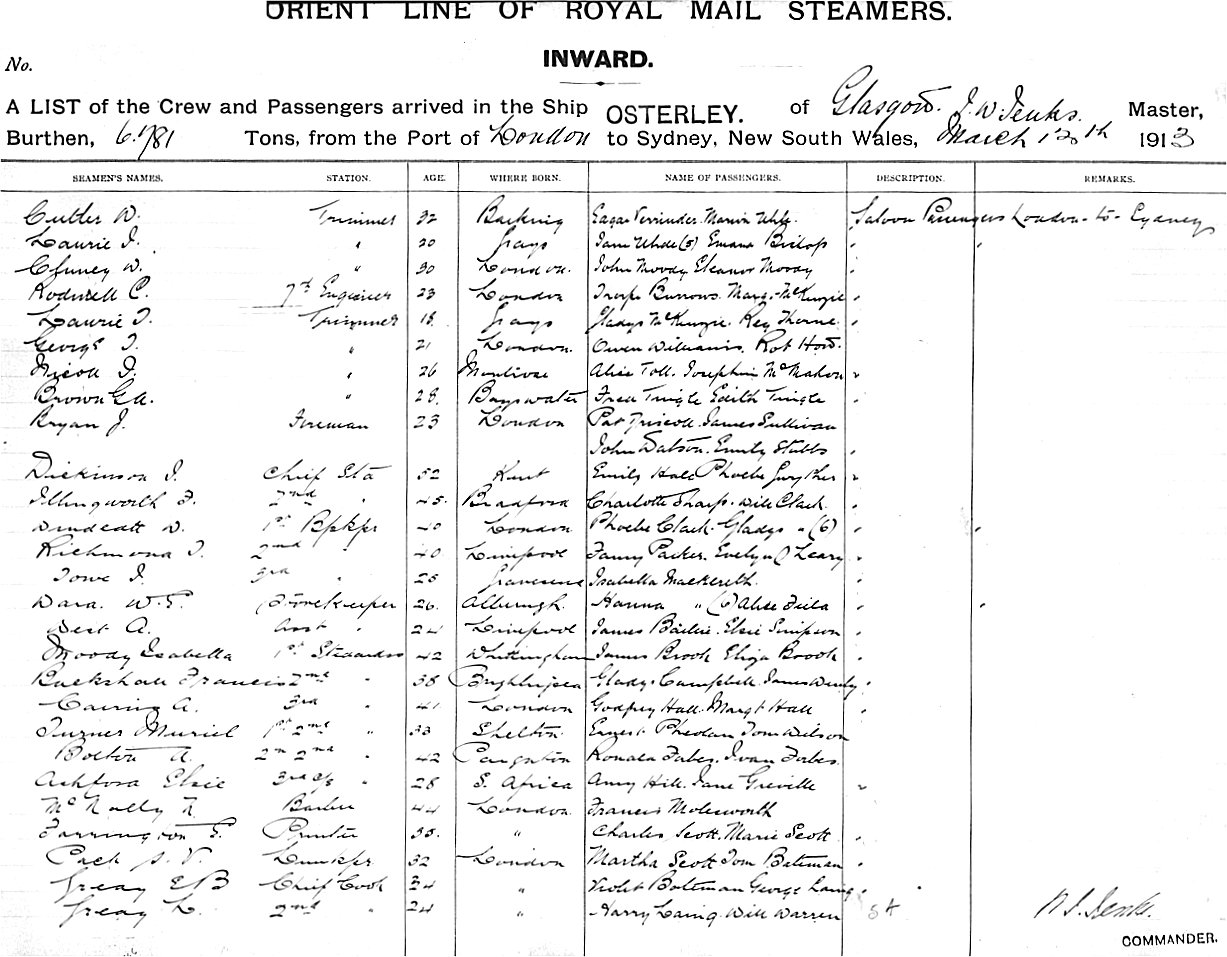 ORIENT LINE OF ROYAL MAIL STEAMERS.
No.
INWARD.
A LIST of the Crew and Passengers arrived in the Ship OSTERLEY. of Glasgow. Jenks. Master,
Burthen, 6.781 Tons, from the Port of London to Sydney, New South Wales, March 13th 1913
SEAMEN'S NAMES. STATION. AGE. WHERE BORN. NAME OF PASSENGERS. DESCRIPTION. REMARKS.
Cutler W. Trimmer 32 Barking Saloon Passengers London to Sydney
Laurie J. " 20 Grays Bishop "
W. " 30 London. John Moody Eleanor Moody "
Rodwell C. 7th Engineer 23 London Burrows. McKenzie "
Laurie J. Trimmer 18. Grays Gladys McKenzie. Reg Thorne "
George J. " 21 London. Owen Williams. Rob How. "
Nicoll J. " 26 Alice Toll. Josephine McMahon "
Brown G.A. " 28. Bayswater Fred Tingle Edith Tingle "
Bryan J. Foreman 23 London Pat Driscoll. James Sullivan
John Watson. Emily Stubbs "
Dickinson J. Chief Std 52 Kent Emily Hall Phoebe "
Illingworth F. 2nd " 45. Bradford Charlotte Sharp. Will Clack. "
W. 1st Bpkpr 40 London Phoebe Clack. Gladys " (6) "
Richmond J. 2nd " 40 Liverpool Fanny Parker. Evelyn O'Leary "
Towe J. 3rd " 25 Gravesend Isabella Mackereth. "
W.E. Storekeeper 26. Hanna " (6) Alice "
West A. Asst " 24 Liverpool James Bailie. Elsie Simpson "
Moody Isabella 1st Stewardess 42 Whittingham James Brook Eliza Brook "
Buckshall Francis 2nd " 38 Brightlingsea Gladys Campbell. James "
A. 3rd " 41 London Godfrey Hall. Margt Hall "
Turner Muriel 1st 2nd " 33 Shelton Ernest Phelan Tom Wilson
Bolton A. 2nd 2nd " 42 Paignton Ronald Forbes. Ivan Forbes.
Ashford Elsie 3rd " 28 S. Africa Amy Hill. Jane Greville "
McNally N. Barber 44 London Francis Molesworth
Farrington E. Printer 33. " Charles Scott. Marie Scott "
Pack V. 32 London Martha Scott Tom Bateman "
Greay E B Chief Cook 34 " Violet Bateman George Laing "
Greay L. 2nd " 24 " Harry Laing. Will Warren
Jenks.
COMMANDER.